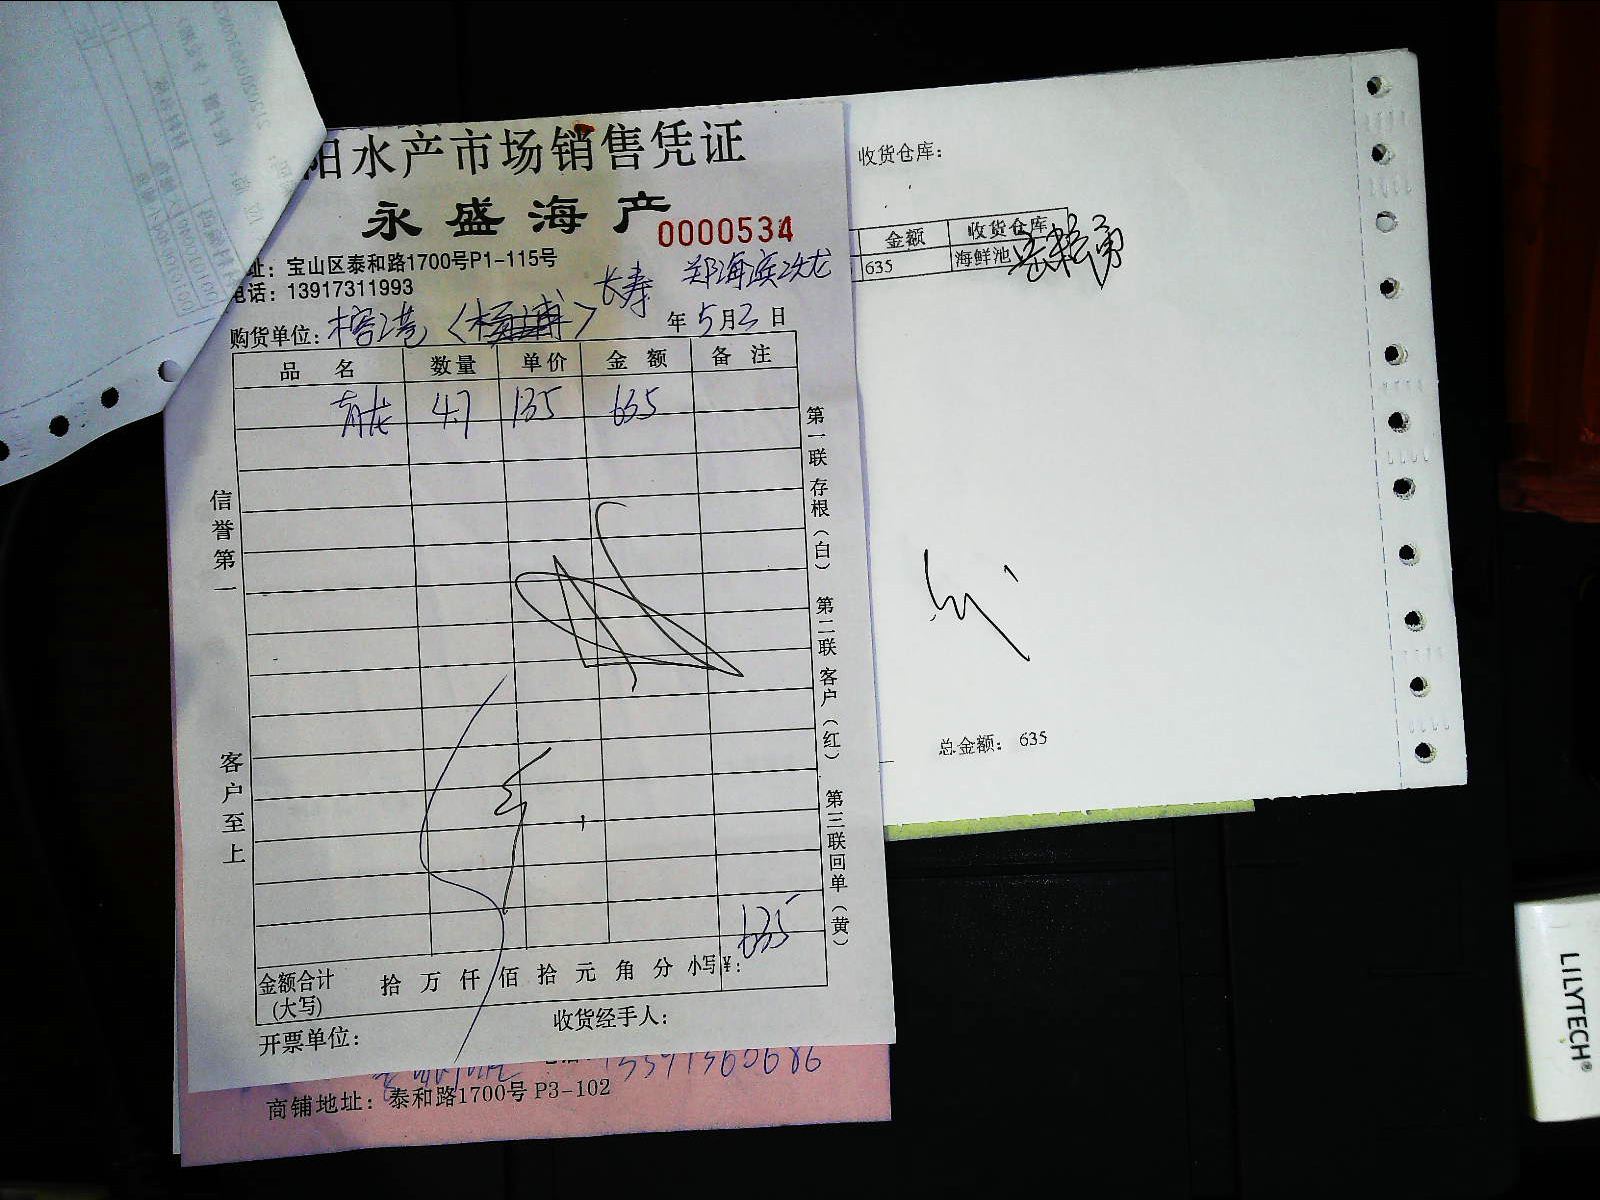 阳水产市场销售凭证
永盛海产
0000534
址：宝山区泰和路1700号P1-115号
电话：13917311993
长寿
购货单位：
年 5月2日
品名 数量 单价 金额 备注
青龙 4.7 135 635
信誉第一
客户至上
第一联 存根（白） 第二联 客户（红） 第三联 回单（黄）
635
金额合计（大写） 拾 万 仟 佰 拾 元 角 分 小写￥：
开票单位：
收货经手人：
商铺地址：泰和路1700号 P3-102
收货仓库：
金额 收货仓库
635 海鲜池
总金额： 635
LILYTECH®